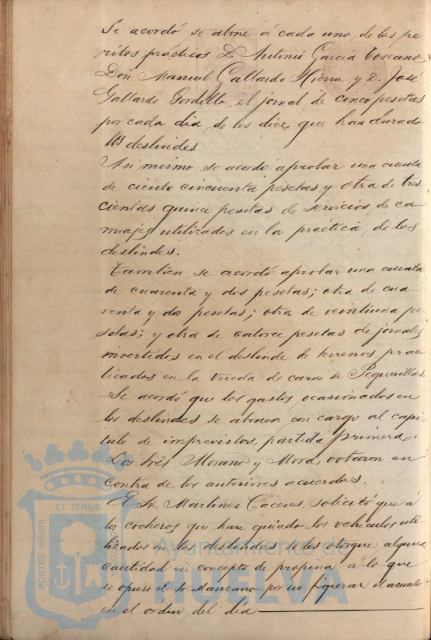 Se acordó se abone á cada uno, de los pe
ritos prácticos D. Antonio García Toscano,
Don Manuel Gallardo Hierro y D. José
Gallardo Gordillo, el jornal de cinco pesetas
por cada dia, de los diez, que han durado
los deslindes.
Asi mismo se acordó aprobar una cuenta
de ciento cincuenta pesetas y otra de tres
cientas quince pesetas de servicios de ca
rruajes utilizados en la practica, de los
deslindes.
Tambien se acordó aprobar una cuenta
de cuarenta y dos pesetas; otra de cua
renta y dos pesetas; otra de veintiuna pe
setas; y otra de catorce pesetas de jornales
invertidos en el deslinde de terrenos prac
ticados en la Vereda de carne de Peguerillas.
Se acordó que los gastos ocasionados en
los deslindes se abonen con cargo al capi
tulo de imprevistos, partida primera.
Los Sres Morano y Mora, votaron en
contra de los anteriores acuerdos.
El Sr. Martinez Cáceres, solicitó que á
los cocheros que han guiado los vehículos uti
lizados en los deslindes se les otorgue alguna
cantidad en concepto de propina á lo que
se opuso el Sr Manzano por no figurar el asunto
en el orden del dia
PORTUS MARIS ET TERRAE
Ayuntamiento de
HUELVA